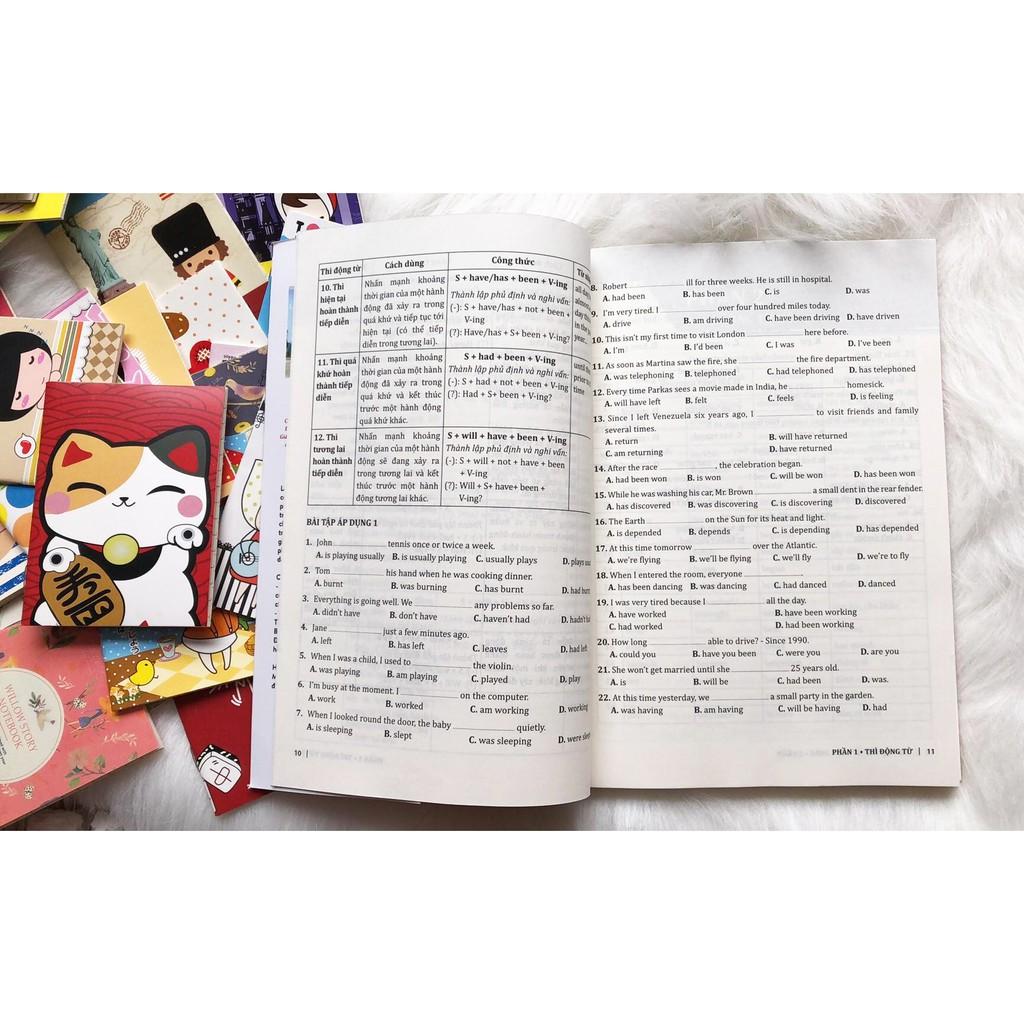 Thì động từ
Cách dùng
Công thức
10. Thì
hiện tại
hoàn thành
tiếp diễn
Nhấn mạnh khoảng
thời gian của một hành
động đã xảy ra trong
quá khứ và tiếp tục tới
hiện tại (có thể tiếp
diễn trong tương lai).
S + have/has + been + V-ing
Thành lập phủ định và nghi vấn:
(-): S + have/has + not + been +
V-ing
(?): Have/has + S+ been + V-ing?
11. Thì quá
khứ hoàn
thành tiếp
diễn
Nhấn mạnh khoảng
thời gian của một hành
động đã xảy ra trong
quá khứ và kết thúc
trước một hành động
quá khứ khác.
S + had + been + V-ing
Thành lập phủ định và nghi vấn:
(-): S + had + not + been + V-ing
(?): Had + S+ been + V-ing?
12. Thì
tương lai
hoàn thành
tiếp diễn
Nhấn mạnh khoảng
thời gian của một hành
động sẽ đang xảy ra
trong tương lai và kết
thúc trước một hành
động tương lai khác.
S + will + have + been + V-ing
Thành lập phủ định và nghi vấn:
(-): S + will + not + have + been
+ V-ing
(?): Will + S+ have+ been +
V-ing?
BÀI TẬP ÁP DỤNG 1
1. John __________ tennis once or twice a week.
A. is playing usually B. is usually playing C. usually plays D. plays
2. Tom __________ his hand when he was cooking dinner.
A. burnt B. was burning C. has burnt D. had burnt
3. Everything is going well. We __________ any problems so far.
A. didn't have B. don't have C. haven't had D. hadn't
4. Jane __________ just a few minutes ago.
A. left B. has left C. leaves D. had left
5. When I was a child, I used to __________ the violin.
A. was playing B. am playing C. played D. play
6. I'm busy at the moment. I __________ on the computer.
A. work B. worked C. am working D. working
7. When I looked round the door, the baby __________ quietly.
A. is sleeping B. slept C. was sleeping D. were
10 |
8. Robert __________ ill for three weeks. He is still in hospital.
A. had been B. has been C. is D. was
9. I'm very tired. I __________ over four hundred miles today.
A. drive B. am driving C. have been driving D. have driven
10. This isn't my first time to visit London __________ here before.
A. I'm B. I'd been C. I was D. I've been
11. As soon as Martina saw the fire, she __________ the fire department.
A. was telephoning B. telephoned C. had telephoned D. has telephoned
12. Every time Parkas sees a movie made in India, he __________ homesick.
A. will have left B. felt C. feels D. is feeling
13. Since I left Venezuela six years ago, I __________ to visit friends and family
several times.
A. return B. will have returned
C. am returning D. have returned
14. After the race __________, the celebration began.
A. had been won B. is won C. will be won D. has been won
15. While he was washing his car, Mr. Brown __________ a small dent in the rear fender.
A. has discovered B. was discovering C. is discovering D. discovered
16. The Earth __________ on the Sun for its heat and light.
A. is depended B. depends C. is depending D. has depended
17. At this time tomorrow __________ over the Atlantic.
A. we're flying B. we'll be flying C. we'll fly D. we're to fly
18. When I entered the room, everyone __________.
A. has been dancing B. was dancing C. had danced D. danced
19. I was very tired because I __________ all the day.
A. have worked B. have been working
C. had worked D. had been working
20. How long __________ able to drive? - Since 1990.
A. could you B. have you been C. were you D. are you
21. She won't get married until she __________ 25 years old.
A. is B. will be C. had been D. was.
22. At this time yesterday, we __________ a small party in the garden.
A. was having B. am having C. will be having D. had
PHẦN 1 • THÌ ĐỘNG TỪ | 11
WILLOW STORY
NOTEBOOK